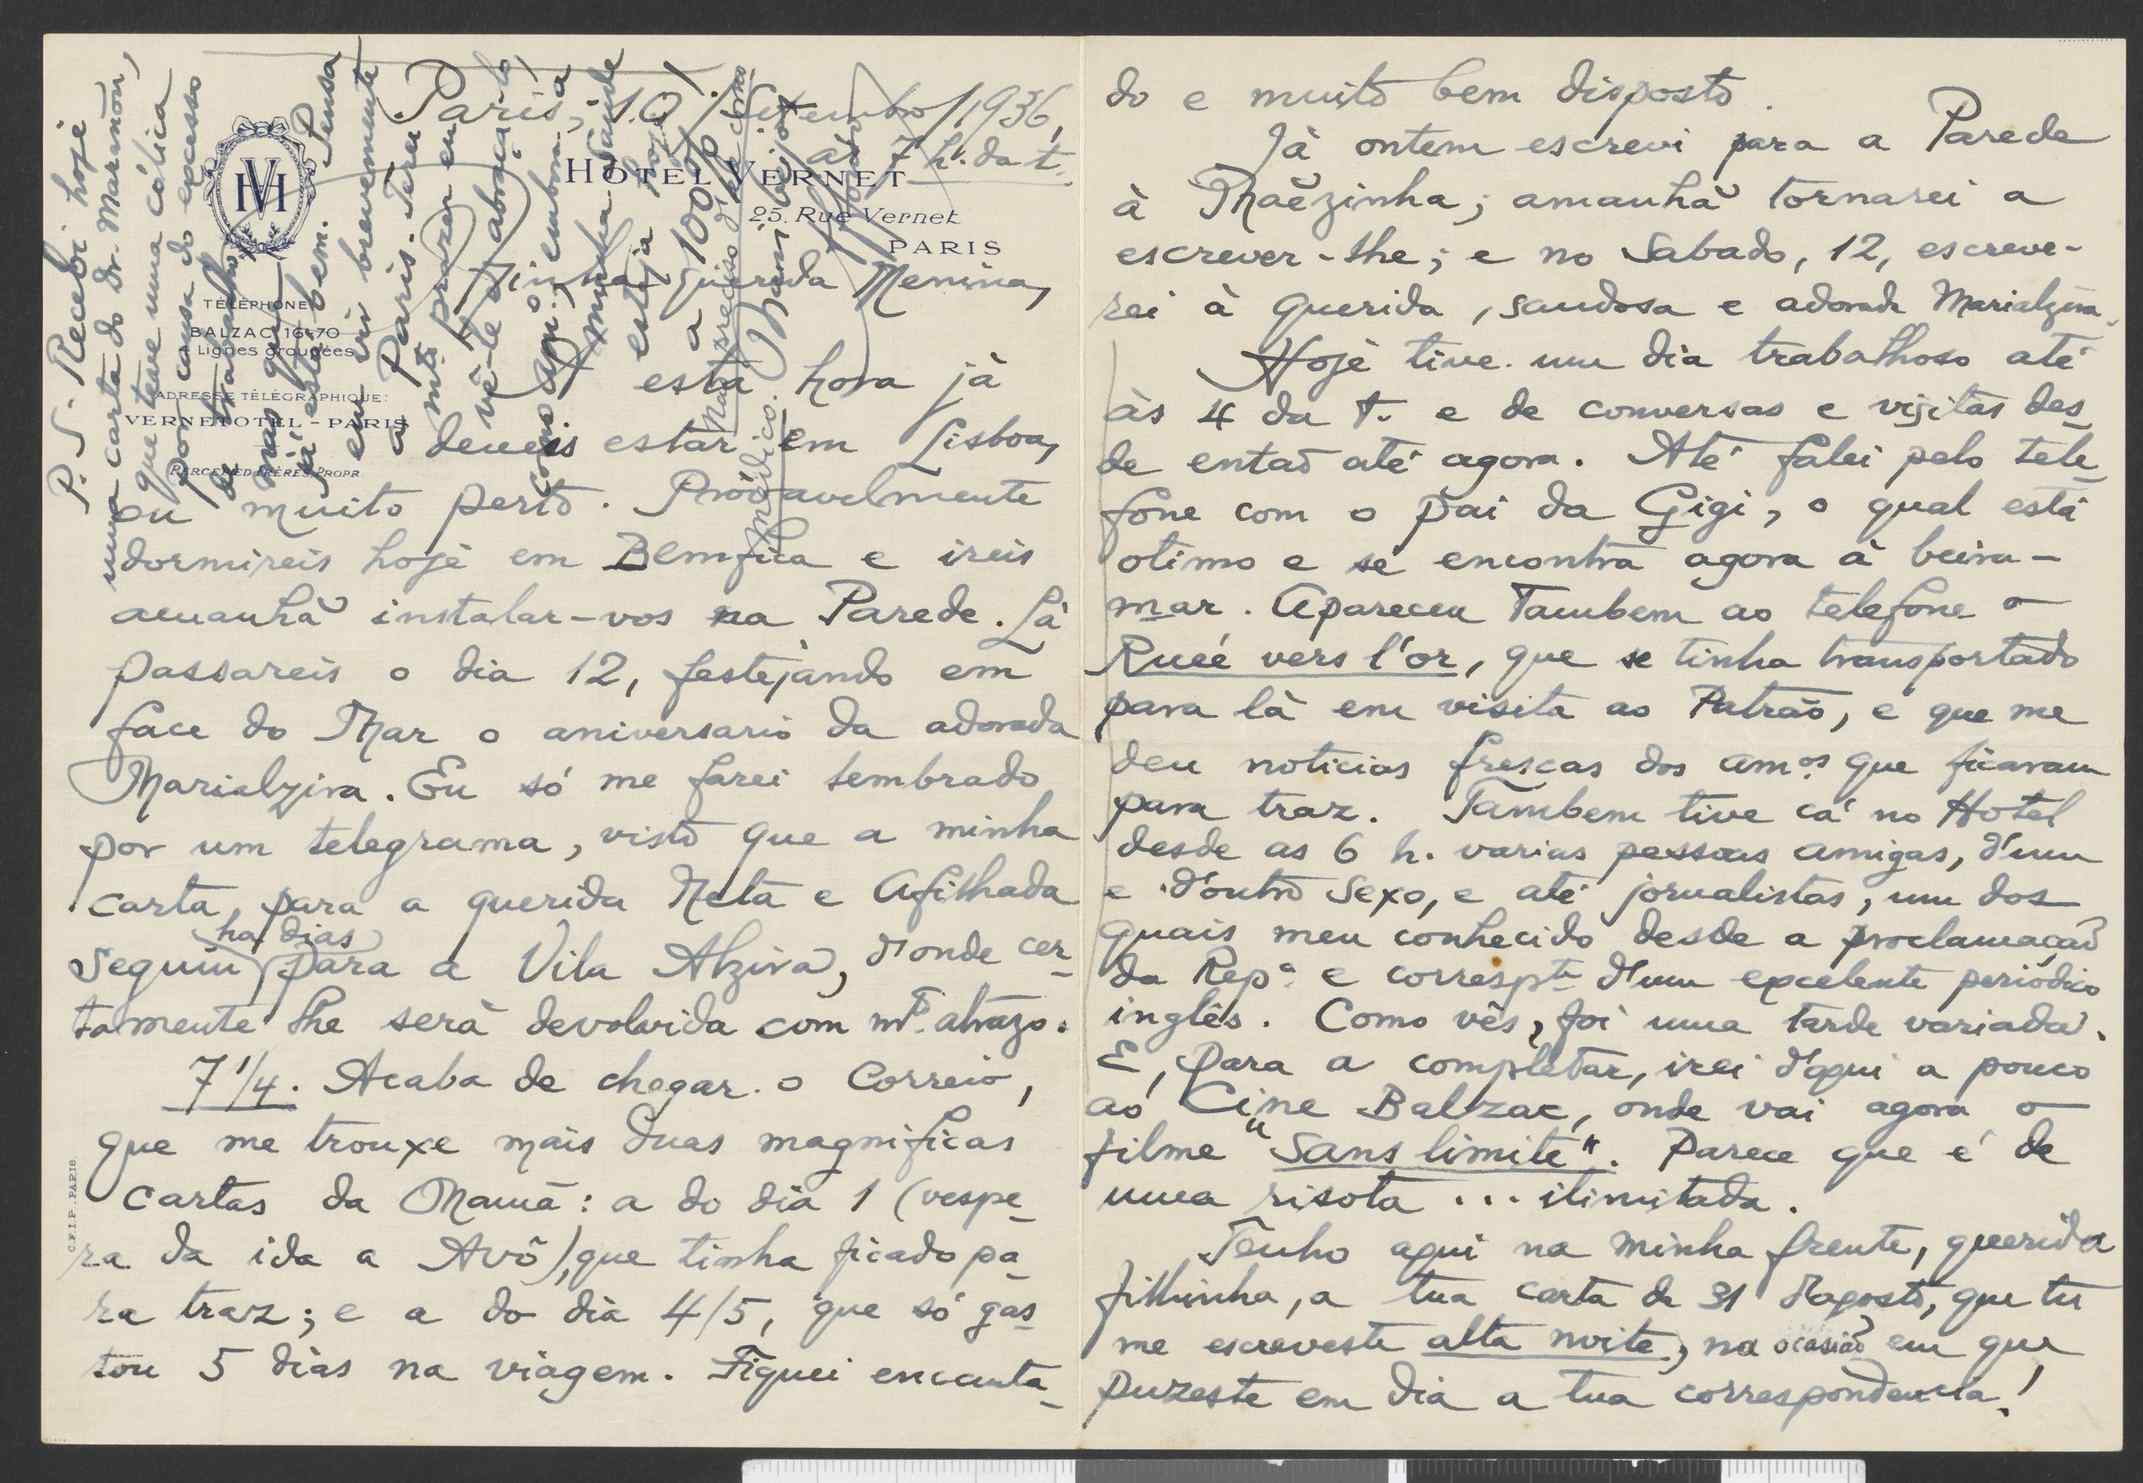 Paris, 10/Setembro/1936,
ás 7 h. da t.
HOTEL VERNET
25, Rue Vernet
PARIS
HV
TÉLÉPHONE
BALZAC 16-70
4 Lignes groupées
ADRESSE TÉLÉGRAPHIQUE:
VERNETOTEL - PARIS
Minha querida Menina,
A esta hora já
deveis estar em Lisboa,
ou muito perto. Provavelmente
dormireis hoje em Bemfica e ireis
amanhã instalar-vos na Parede. Lá
passareis o dia 12, festejando em
face do Mar o aniversario da adorada
Marialzira. Eu só me farei lembrado
por um telegrama, visto que a minha
carta, para a querida Neta e Afilhada
ha dias
seguiu para a Vila Alzira, d'onde cer-
tamente lhe será devolvida com mto. atrazo.
7 1/4. Acaba de chegar o Correio,
que me trouxe mais duas magnificas
cartas da Mamã: a do dia 1 (vespe-
ra da ida a Avô), que tinha ficado pa-
ra traz; e a do dia 4/5, que só gas-
tou 5 dias na viagem. Fiquei encanta-
C.F.I.P. PARIS
do e muito bem disposto.
Já ontem escrevi para a Parede
à Mãezinha; amanhã tornarei a
escrever-lhe; e no Sabado, 12, escreve-
rei à querida, saudosa e adorada Marialzira.
Hoje tive um dia trabalhoso até
às 4 da t. e de conversas e visitas des-
de entaõ até agora. Até falei pelo tele-
fone com o pai da Gigi, o qual está
otimo e se encontra agora à beira-
mar. Apareceu Tambem ao telefone o
Rueé vers l'or, que se tinha transportado
para lá em visita ao Patrão, e que me
deu noticias frescas dos amos. que ficavam
para traz. Tambem tive cá no Hotel
desde as 6 h. varias pessoas amigas, d'um
e d'outro sexo, e até jornalistas, um dos
quais meu conhecido desde a proclamação
da Repa. e correspte. d'um excelente periódico
inglês. Como vês, foi uma tarde variada.
E, para a completar, irei d'aqui a pouco
ao Cine Balzac, onde vai agora o
filme "Sans limite". Parece que é de
uma risota ... ilimitada.
Tenho aqui na minha frente, querida
filhinha, a tua carta de 31 d'Agosto, que tu
me escreveste alta noite, na ocasião em que
puzeste em dia a tua correspondencia!
P.S. Recebi hoje
uma carta do Dr. Marañon,
que teve uma cólica
por causa do excesso
de trabalho,
mas que
já está bem. Pensa
em vir brevemente
a Paris. Terei
mto. prazer em
vê-lo e abraçá-lo
como amo., embora a
minha saúde
esteja hoje
a 100%
Não preciso d'ele como
médico.